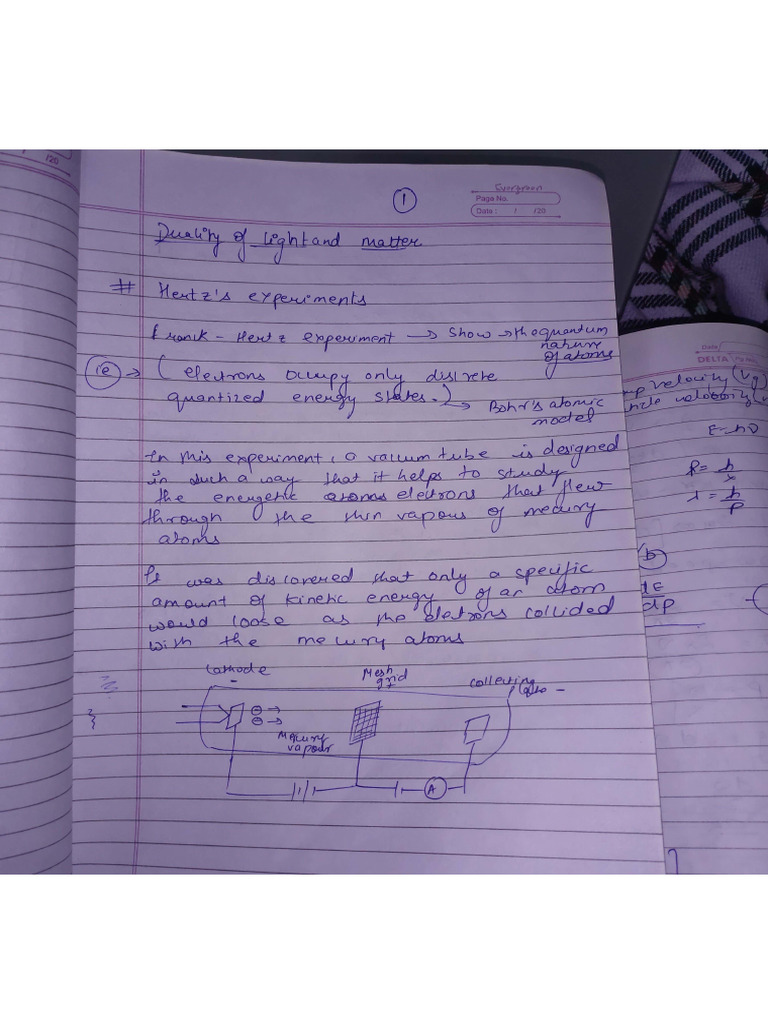 /20
Evergreen
Page No.
Date : / /20
1
Duality of light and matter
# Hertz's experiments
Frank - Hertz experiment → Show → the quantum
nature
of atoms
ie → ( electrons occupy only discrete
quantized energy states. ) → Bohr's atomic
model
In this experiment, a vaccum tube is designed
in such a way that it helps to study
the energetic atoms electrons that flew
through the thin vapous of mecury
atoms
It was discovered that only a specific
amount of kinetic energy of an atom
would loose as the eletrons collided
with the mecury atoms
Cathode
-
Mesh
grid
+
Collecting
plate -
Mercury
vapour
A
Date
DELTA Pg No.
velocity (Vg)
velocity
E=hυ
ħ = h
λ = h
p
b
dE
dp